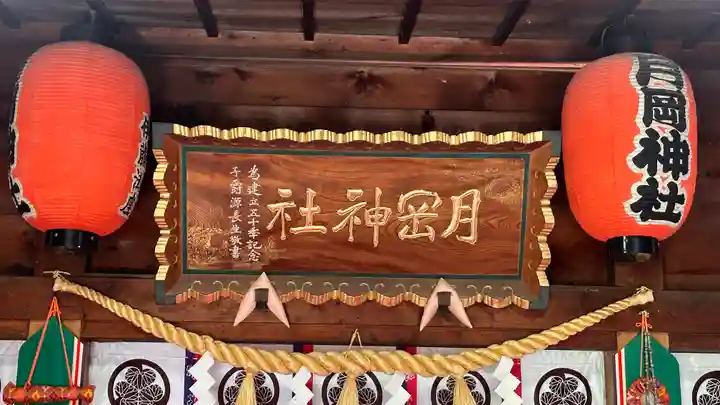 月岡神社
為建立五十季記念
子爵源長生敬書
月岡神社